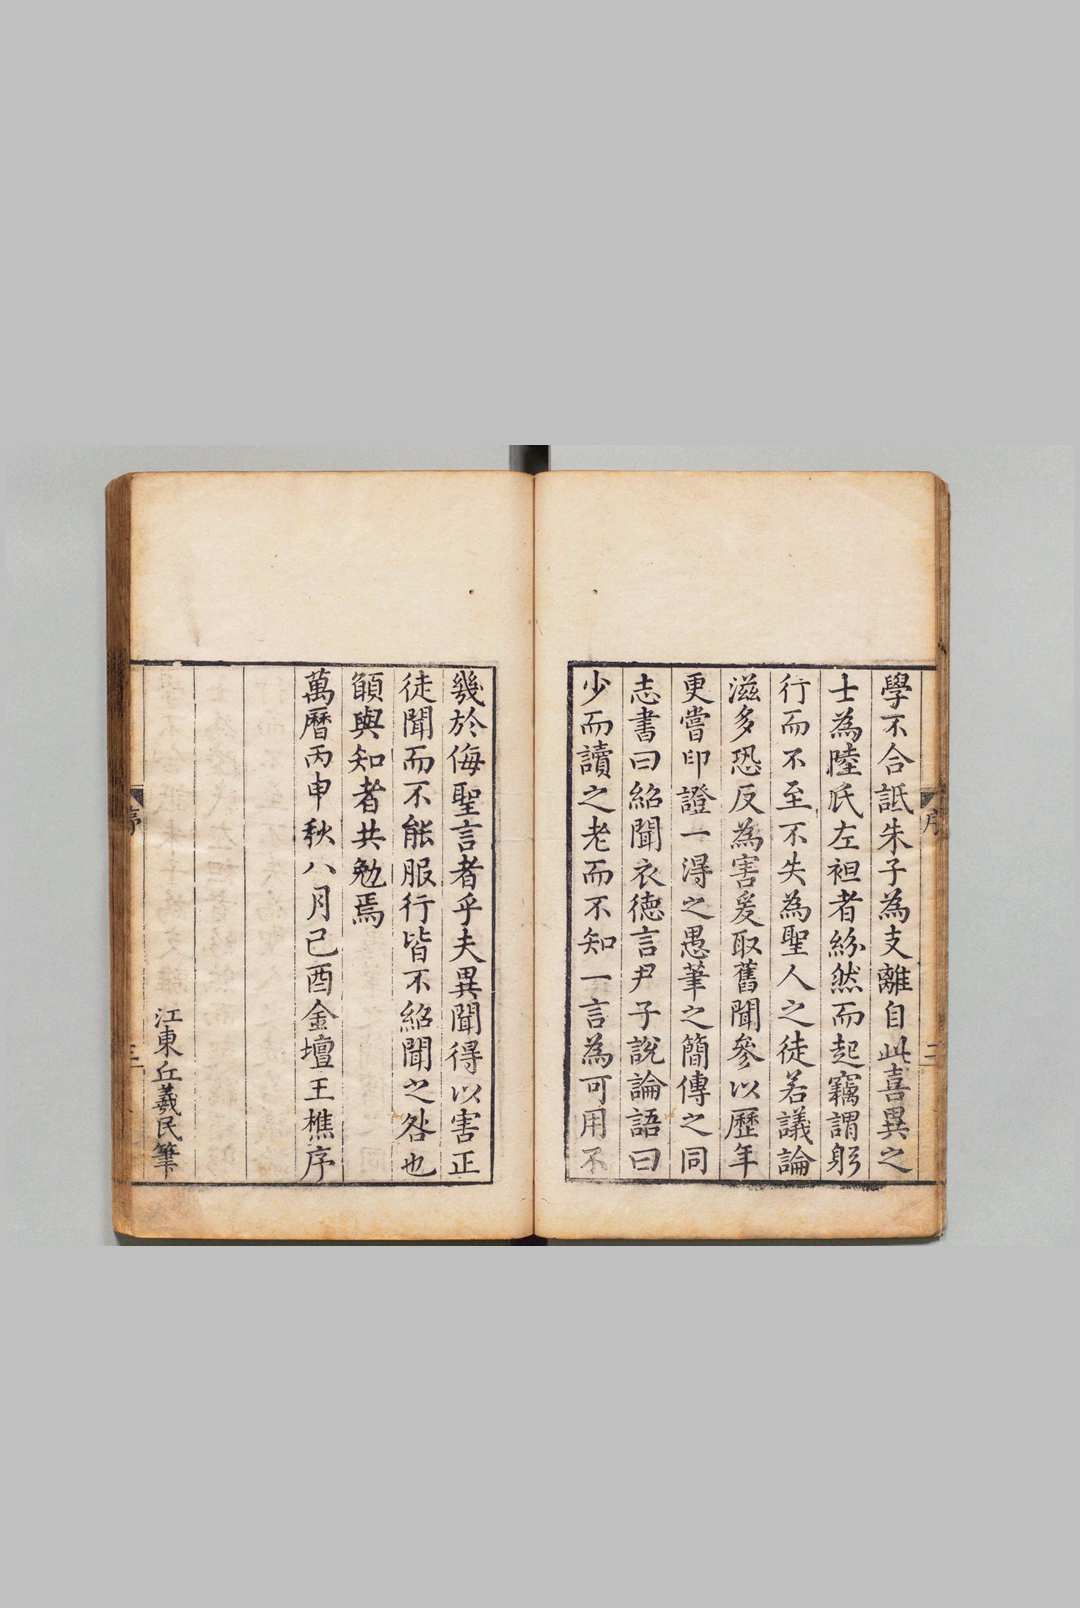 學不合詆朱子為支離自此喜異之
士為陸氏左袒者紛然而起竊謂躬
行而不至不失為聖人之徒若議論
滋多恐反為害爰取舊聞參以歷年
更嘗印證一得之愚筆之簡傳之同
志書曰紹聞衣德言尹子說論語曰
少而讀之老而不知一言為可用不
幾於侮聖言者乎夫異聞得以害正
徒聞而不能服行皆不紹聞之咎也
願與知者共勉焉
萬曆丙申秋八月己酉金壇王樵序
江東丘羲民筆
序
二
序
三